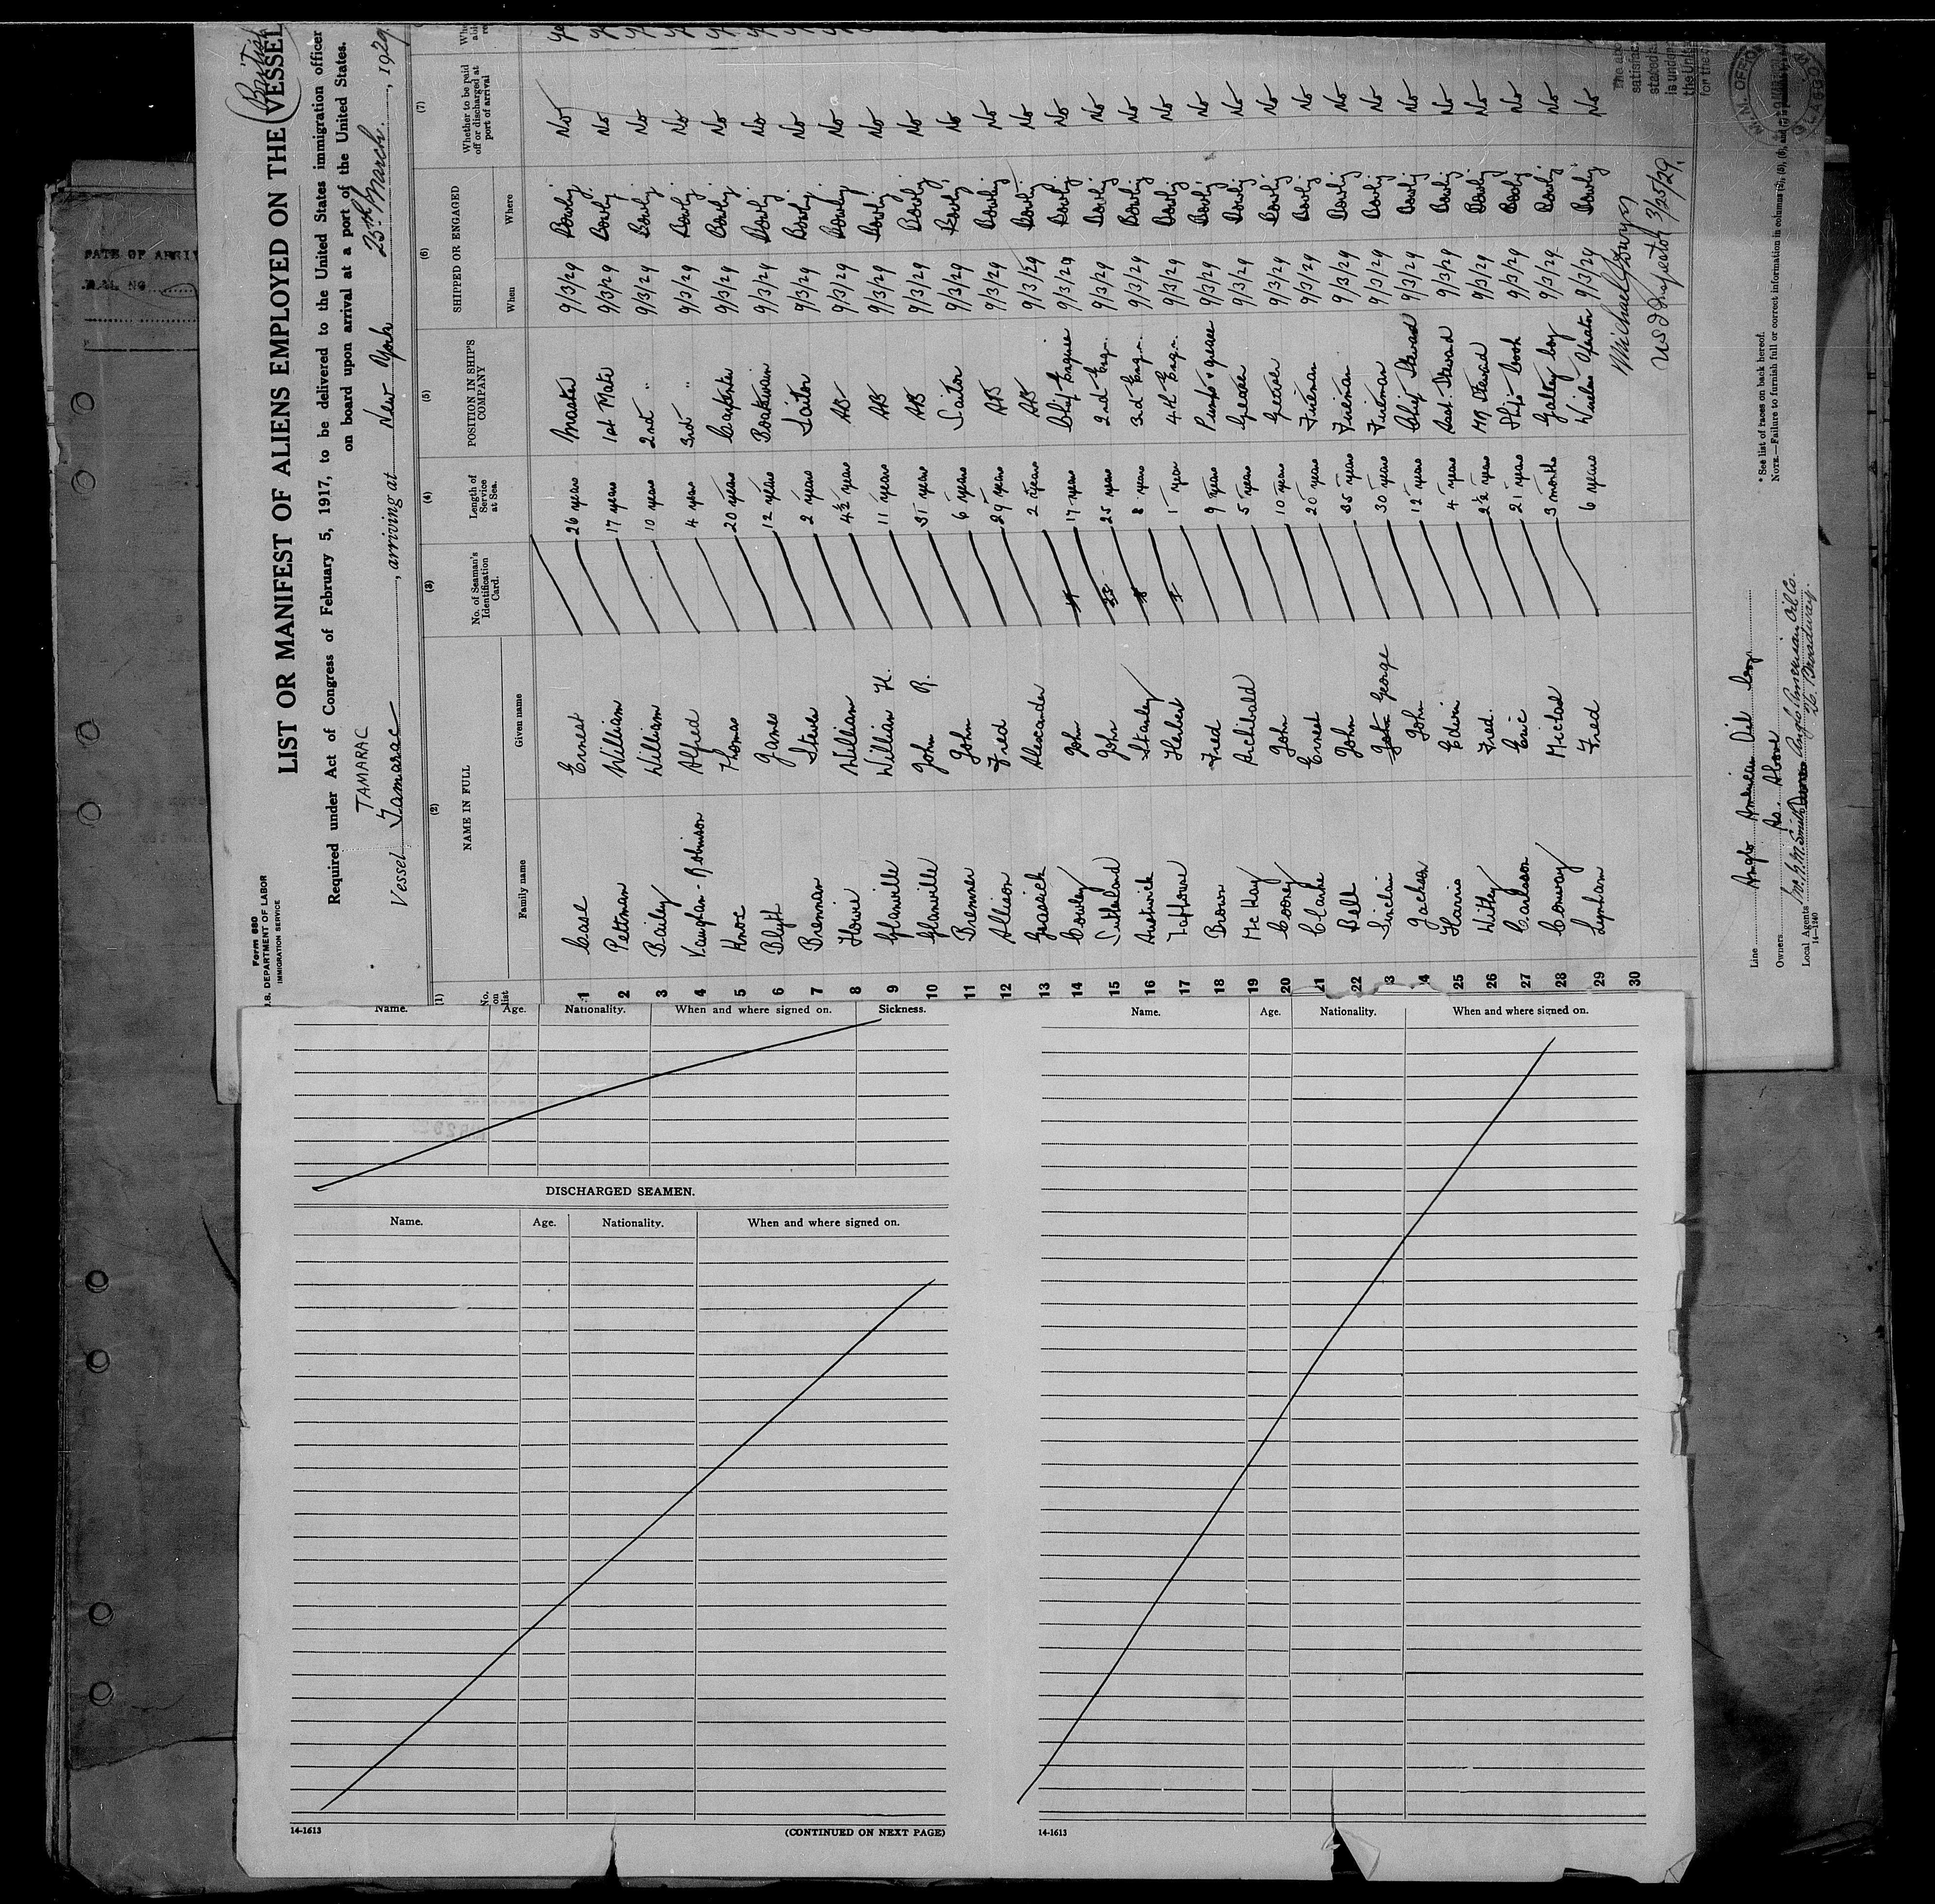 DATE OF ARRIV
Form 680
U.S. DEPARTMENT OF LABOR
IMMIGRATION SERVICE
British
LIST OR MANIFEST OF ALIENS EMPLOYED ON THE VESSEL
Required under Act of Congress of February 5, 1917, to be delivered to the United States immigration officer
on board upon arrival at a port of the United States.
TAMARAC
Vessel Tamarac, arriving at New York 25th March, 1929
(1) (2) (3) (4) (5) (6) (7)
No. on list NAME IN FULL No. of Seaman's Identification Card. Length of Service at Sea. POSITION IN SHIP'S COMPANY SHIPPED OR ENGAGED Whether to be paid off or discharged at port of arrival
Family name Given name When Where
1 Case Ernest 26 years Master 9/3/29 Bowling No
2 Pettman William 17 years 1st Mate 9/3/29 Bowling No
3 Bailey William 10 years 2nd " 9/3/29 Bowling No
4 Vaughan-Robinson Alfred 4 years 3rd " 9/3/29 Bowling No
5 Knox Thomas 20 years Carpenter 9/3/29 Bowling No
6 Blyth James 12 years Boatswain 9/3/29 Bowling No
7 Brennan Steve 2 years Sailor 9/3/29 Bowling No
8 Howie William 4½ years AB 9/3/29 Bowling No
9 Glanville William H. 11 years AB 9/3/29 Bowling No
10 Glanville John R. 31 years AB 9/3/29 Bowling No
11 Brenner John 6 years Sailor 9/3/29 Bowling No
12 Allison Fred 29 years AB 9/3/29 Bowling No
13 Grassick Alexander 2 years AB 9/3/29 Bowling No
14 Cowley John 17 17 years Chief Engineer 9/3/29 Bowling No
15 Sutherland John 25 25 years 2nd Eng. 9/3/29 Bowling No
16 Austwick Stanley 8 8 years 3rd Eng. 9/3/29 Bowling No
17 Herbert 1 1 year 4th Eng. 9/3/29 Bowling No
18 Brown Fred 9 years Pumps & greaser 9/3/29 Bowling No
19 McKay Archibald 5 years Greaser 9/3/29 Bowling No
20 Cooney John 10 years Greaser 9/3/29 Bowling No
21 Clarke Ernest 20 years Fireman 9/3/29 Bowling No
22 Bell John 35 years Fireman 9/3/29 Bowling No
23 Sinclair John George 30 years Fireman 9/3/29 Bowling No
24 Jackson John 12 years Chief Steward 9/3/29 Bowling No
25 Harris Edwin 4 years Asst. Steward 9/3/29 Bowling No
26 Withy Fred. 2½ years Steward 9/3/29 Bowling No
27 Carlsson Eric 21 years Ship's Cook 9/3/29 Bowling No
28 Conway Michael 3 months Galley boy 9/3/29 Bowling No
29 Lynham Fred 6 years Wireless Operator 9/3/29 Bowling No
30
US Inspector 3/25/29.
Line Anglo American Oil Coy.
Owners As Above
Local Agents Anglo American Oil Co.
26 Broadway.
14-1240
*See list of races on back hereof.
NOTE.—Failure to furnish full or correct information in columns (2), (5), (6),
Name. Age. Nationality. When and where signed on. Sickness.
DISCHARGED SEAMEN.
Name. Age. Nationality. When and where signed on.
14-1613 (CONTINUED ON NEXT PAGE)
Name. Age. Nationality. When and where signed on.
14-1613